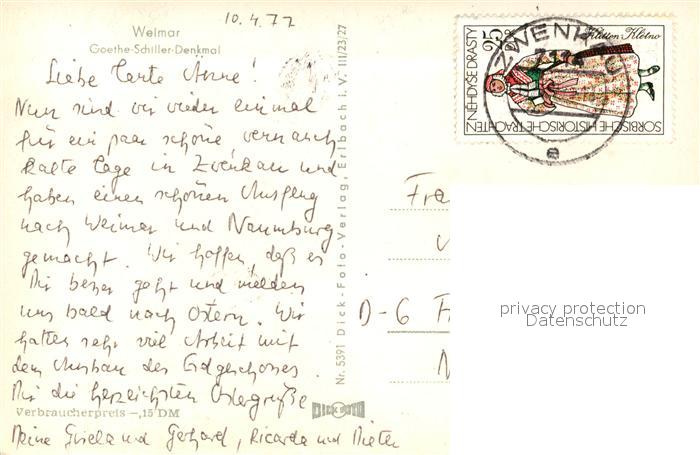 10.4.77
Weimar
Goethe-Schiller-Denkmal
Liebe Tante Anne!
Nun sind wir wieder einmal
für ein paar schöne,
kalte Tage in Zwenkau und
haben einen schönen Ausflug
nach Weimar und Naumburg
gemacht. Wir hoffen, daß es
Dir besser geht und melden
uns bald nach Ostern. Wir
hatten sehr viel Arbeit mit
dem Ausbau des Erdgeschosses.
Mit die herzlichsten Ostergrüße
Verbraucherpreis -,15 DM
Deine Gisela und Gerhard, Ricarda und Dieter
Nr. 5391 Dick-Foto-Verlag, Erlbach i. V. III/23/27
DICK FOTO
NEHDYŠE DRASTY
25
DDR
Klětno
SORBISCHE HISTORISCHE TRACHTEN
ZWENKAU
e
Fra
D-6 F
privacy protection
Datenschutz